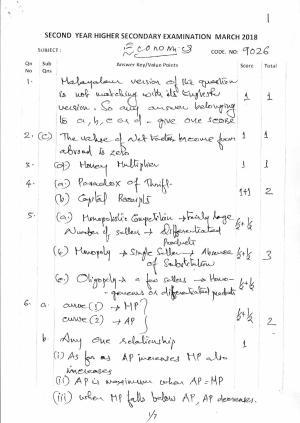 1
SECOND YEAR HIGHER SECONDARY EXAMINATION MARCH 2018
SUBJECT : Economics CODE NO: 9026
Qn No Sub Qns Answer Key/Value Points Score Total
1. Malayalam version of the question
is not matching with its English
version. So any answer belonging
to a, b, c or d - give one score 1 1
2. (c) The value of Net Factor Income from
abroad is zero 1 1
3. (d) Money Multiplier 1 1
4. (a) Paradox of Thrift
(b) Capital Receipts 1+1 2
5. (a) Monopolistic Competition → Fairly large
Number of sellers → Differentiated
Products ½+½
Monopoly → Single Seller → Absence
of Substitution ½+½ 3
Oligopoly → a few sellers → Homo-
geneous or differentiated products ½+½
6. a. curve (1) → MP
curve (2) → AP ½+½ 2
b Any one relationship 1
(i) As far as AP increases MP also
increases
(ii) AP is maximum when AP = MP
(iii) when MP falls below AP, AP decreases.
1/7